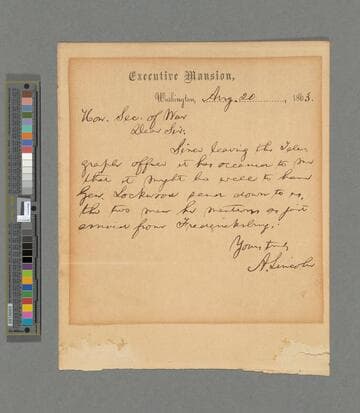 Executive Mansion,
Washington, Aug. 20, 1863.
Hon. Sec. of War
Dear Sir:
Since leaving the Tele-
graph office it has occurred to me
that it might be well to have
Gen. Lockwood send down to us,
the two men he mentions as just
arrived from Fredericksburg.
Yours truly
A. Lincoln